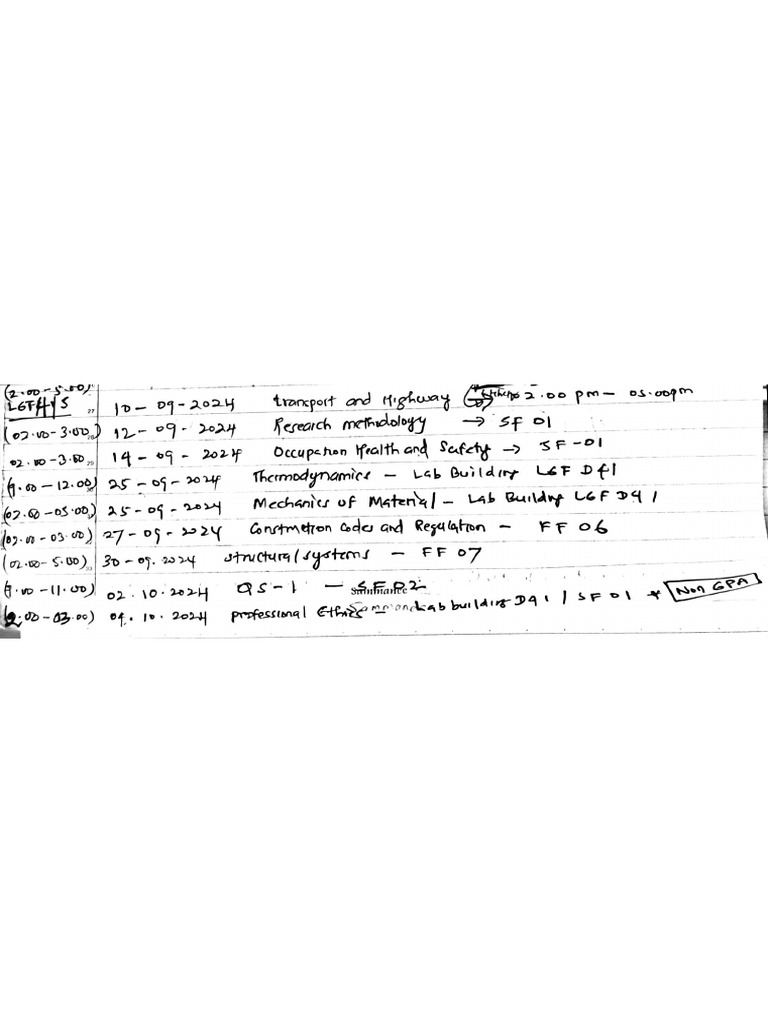 (2.00 - 5.00)
LGF 41/S 10 - 09 - 2024 transport and Highway 2.00 pm - 05.00pm
(02.00 - 3.00) 12 - 09 - 2024 Research methodology → SF 01
02.00 - 3.00 14 - 09 - 2024 Occupation Health and Safety → SF-01
(9.00 - 12.00) 25 - 09 - 2024 Thermodynamics - Lab Building LGF D41
(02.00 - 05.00) 25 - 09 - 2024 Mechanics of Material - Lab Building LGF D41
(02.00 - 03.00) 27 - 09 - 2024 Construction Codes and Regulation - FF 06
(02.00 - 5.00) 30 - 09. 2024 structural systems - FF 07
(9.00 - 11.00) 02.10.2024 QS-1 - SF 02
(2.00 - 03.00) 04.10.2024 professional Ethics - Lab building D41 / SF 01 * Non GPA